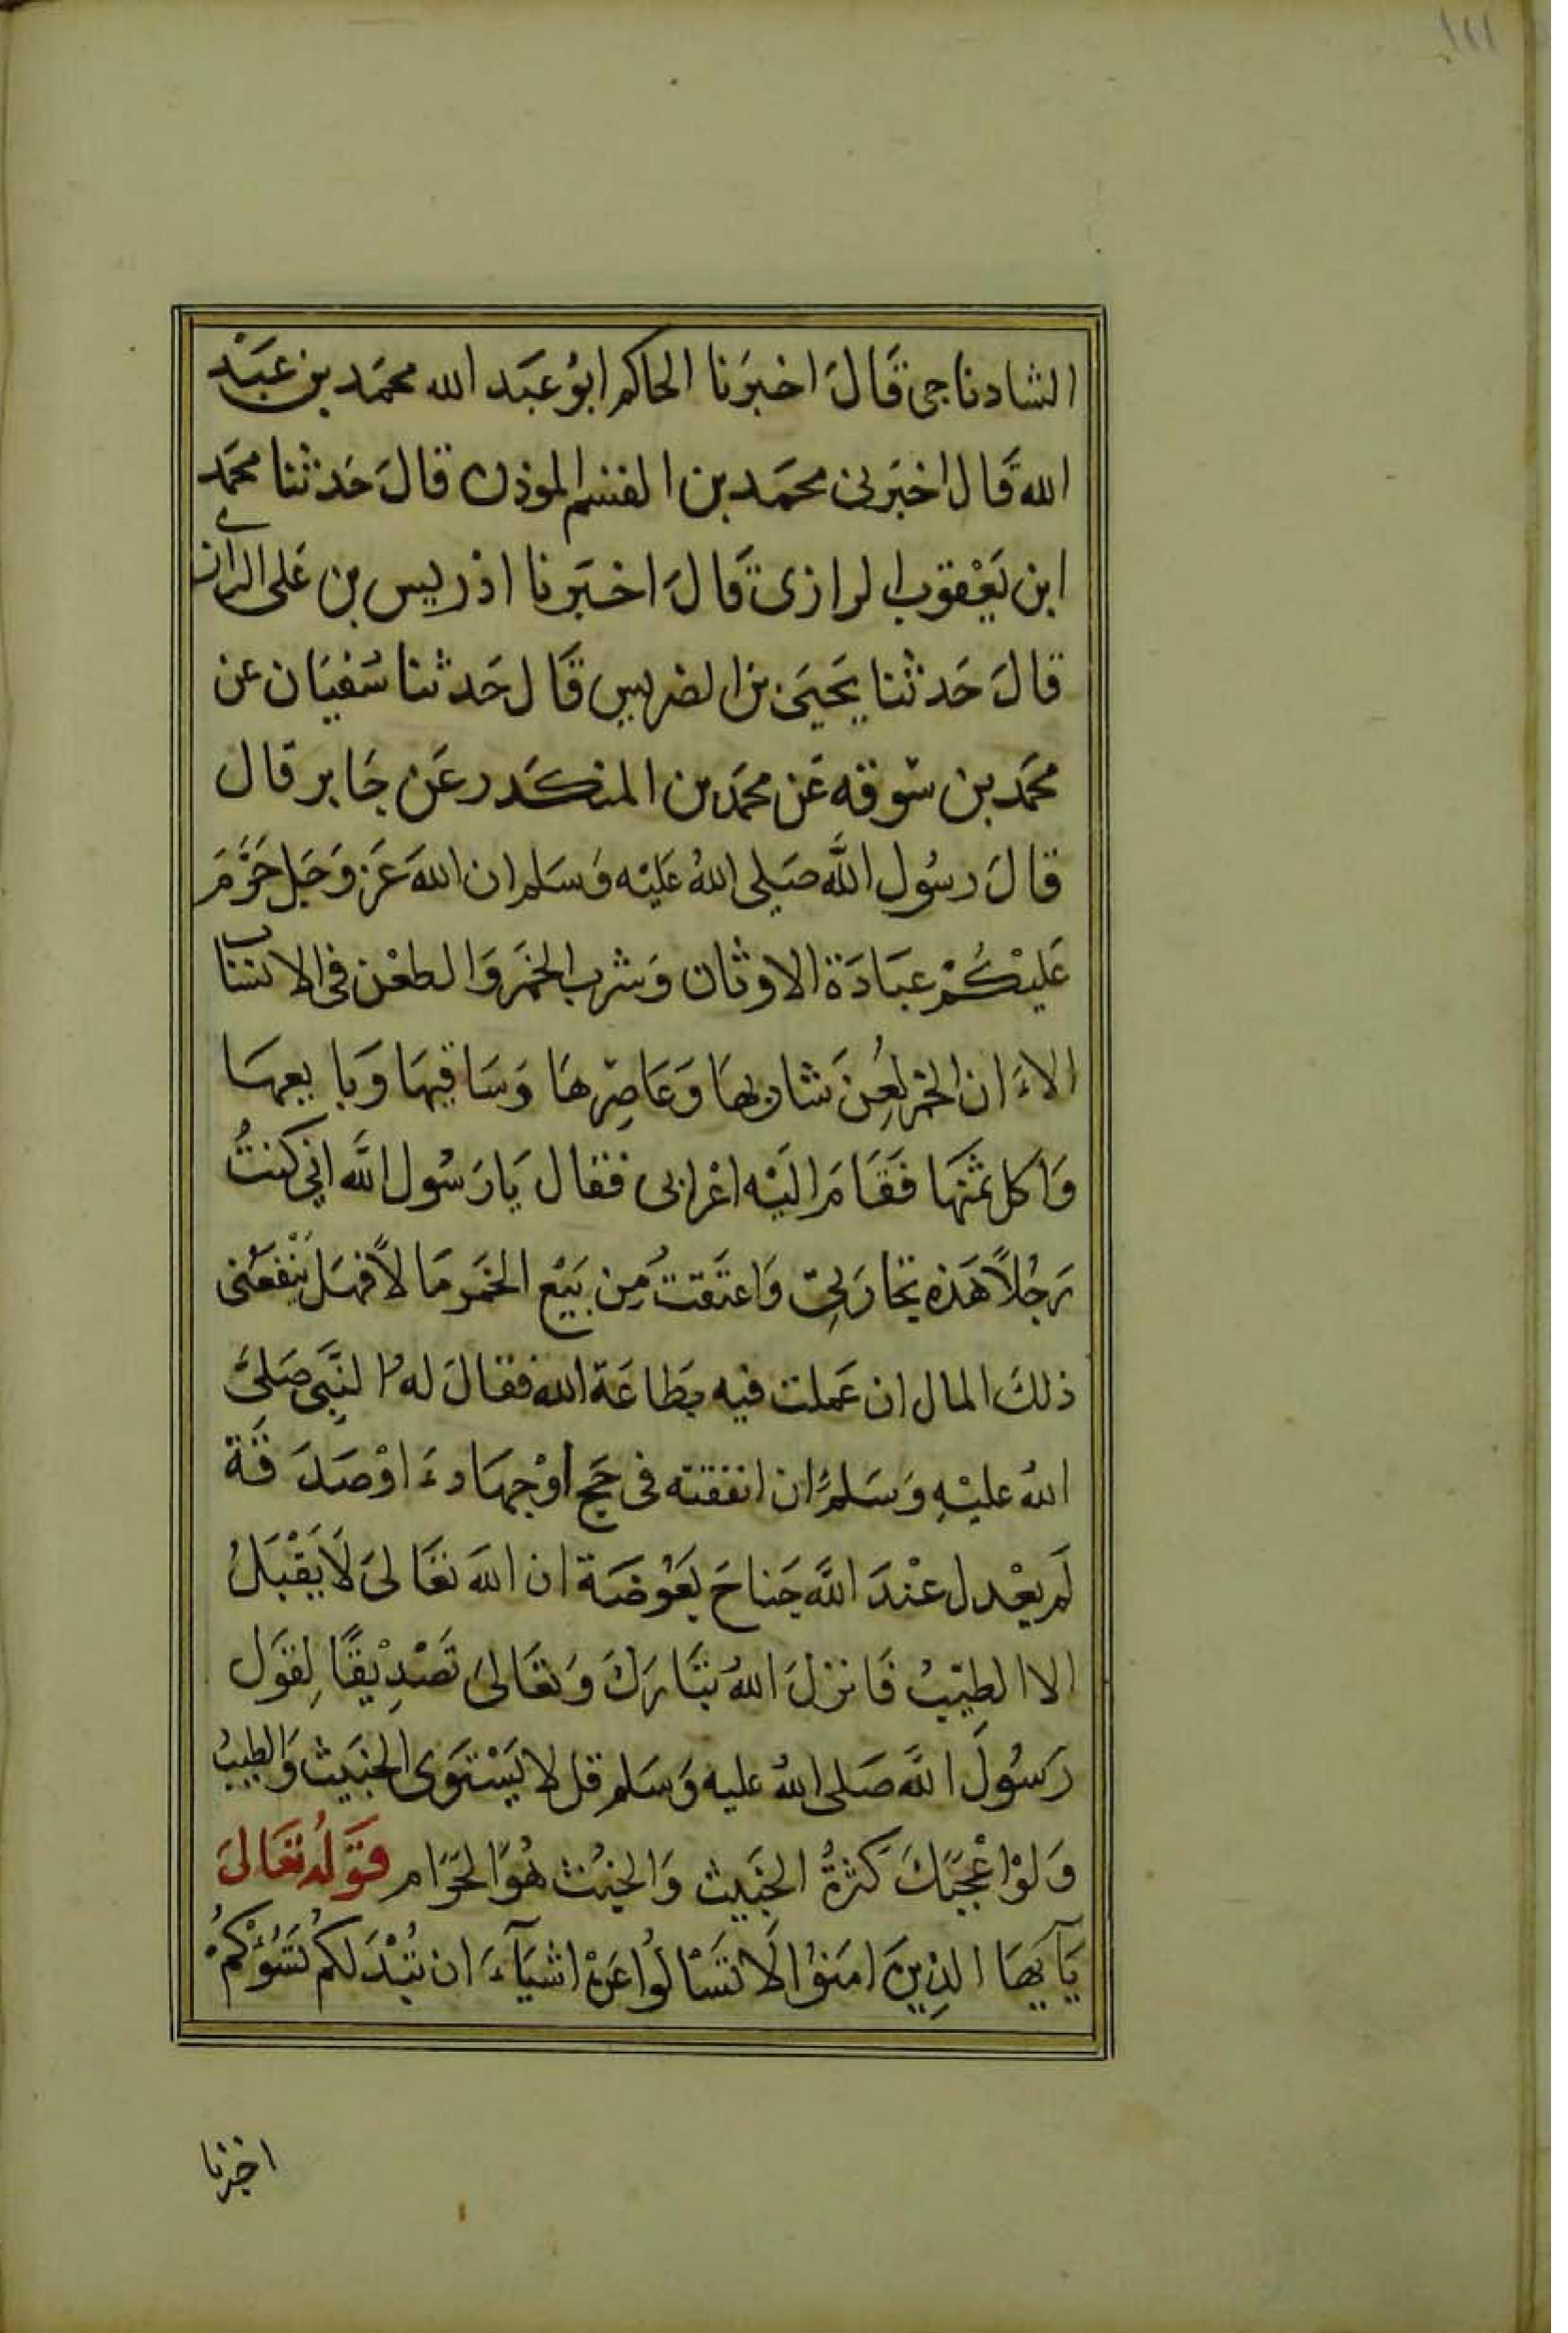 ١١١
الشادناجى قَالَ اخبرَنا الحاكم ابوُ عبَد الله محمَد بن عَبْد
الله قَال اخبَرنى محمَد بن القسم الموذن قالَ حَدثنا محمَد
ابن يَعْقوب الرازى قَالَ اخبَرنا ادْريس بن عَلى الرازى
قالَ حَدثنا يَحيَى بن الضريس قَال حَدثنا سُفيَان عن
محمَد بن سوقه عَن محمَد بن المنكَدر عَن جَابر قال
قالَ رسُول اللَّه صَلى اللهُ عَليْه وَسَلم ان اللهَ عَز وَجَل حَرَّمَ
عَليْكُمْ عبَادَة الاوثان وَشرب الخمَر وَالطعْن فى الانساب
الاءَ ان الخمر لعِنَ شاربها وَعَاصِرهَا وَسَاقيهَا وَبايعهَا
وَاكل ثمنهَا فَقَامَ اليَه اعْرابى فقال يَا رَسُول اللَّه انِي كنتُ
رَجُلاً هَذه تجارَتِى وَاعتَقتُ مِن بَيْع الخمَر مَالاً فهَل يَنْفعَنى
ذلكَ المال ان عَملت فيه بطَاعَة الله فقالَ لهُ النبَّى صَلىَّ
اللهُ عليْهِ وَسَلمَّ ان انفقته فى حَج اوْ جهَادءَ اوْ صَدَقَة
لَم يعْدل عنْدَ اللَّه جَناحَ بَعُوضَة ان اللهَ تعَالىَ لاَ يَقْبَلُ
الا الطيّبُ فَانزلَ اللهُ تبَارَكَ وَتعَالىَ تَصْدِيْقًا لِقوَل
رَسُولَ اللَّه صَلى اللهُ عليه وَسَلم قل لا يَسْتوَى الخبَيث وَالطيبُ
وَلوْ اعْجبَكَ كَثرةُ الخبَيث وَالخبُث هُوَ الحرَام قَوَلهُ تعَالىَ
يَآيهَا الذِينَ امَنوُا لَا تَسْالوُا عَنْ اشيَآءَ ان تُبْدَ لكمُ تَسُؤْكمُ
اخبرنا